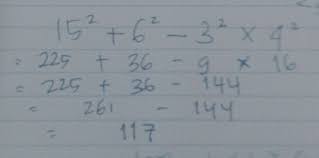 15² + 6² − 3² × 4²
= 225 + 36 − 9 × 16
= 225 + 36 − 144
= 261 − 144
= 117